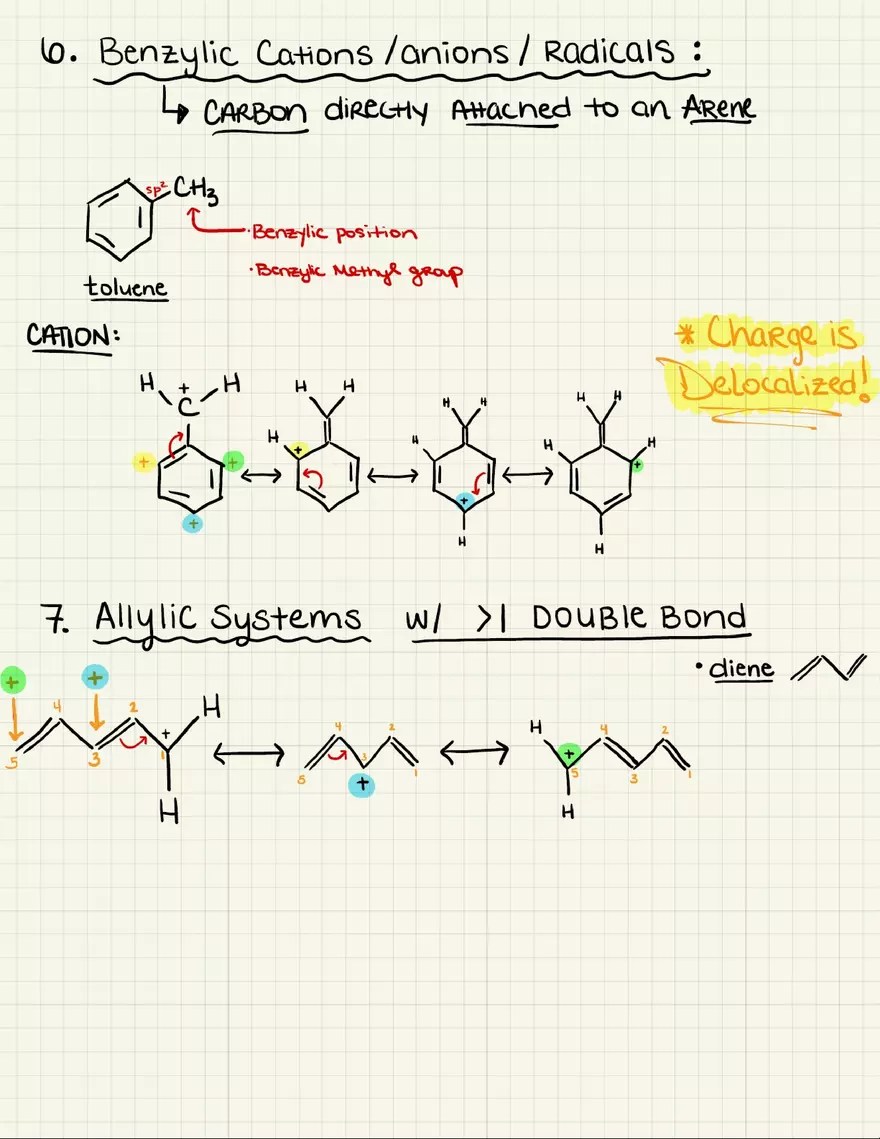 6. Benzylic Cations/anions/Radicals:
↳ CARBON diRECtly Attached to an Arene
sp² CH₃
·Benzylic position
·Benzylic Methyl group
toluene
CATION:
* Charge is
Delocalized!
H + H H H H H H H
C
H H H H
+ + + + +
+ +
H H
7. Allylic Systems w/ >1 DOUBLE BOND
• diene
+ +
4 2 H H
+ 4 2 + 4 2
5 3 1 5 3 1 5 3 1
+
H H